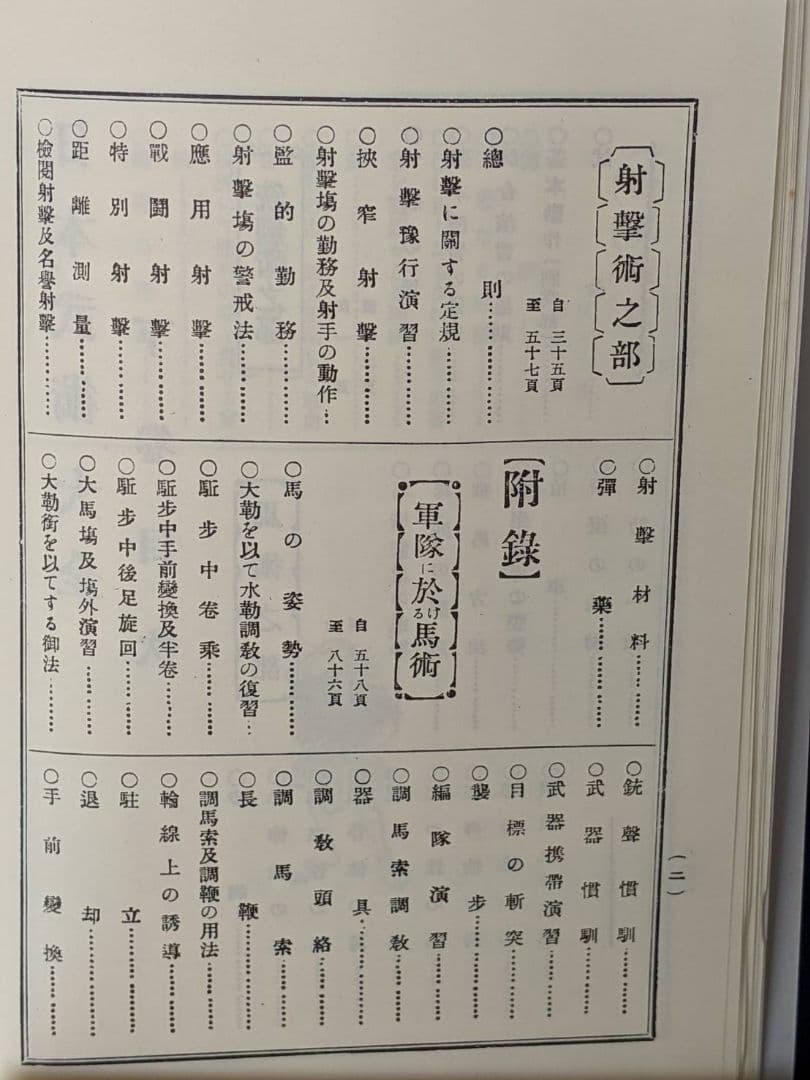 射擊術之部
自 三十五頁
至 五十七頁
○總則……………
○射擊に關する定規…………
○射擊豫行演習…………
○挾窄射擊…………
○射擊塲の勤務及射手の動作…
○監的勤務…………
○射擊塲の警戒法………
○應用射擊…………
○戰鬪射擊…………
○特別射擊…………
○距離測量…………
○檢閱射擊及名譽射擊…………
○射擊材料………
○彈藥…………
【附錄】
軍隊に於ける馬術
自 五十八頁
至 八十六頁
○馬の姿勢…………
○大勒を以て水勒調敎の復習…
○駈步中卷乘…………
○駈步中手前變換及半卷………
○駈步中後足旋回………
○大馬塲及塲外演習………
○大勒銜を以てする御法………
○銃聲慣馴………
○武器慣馴………
○武器携帶演習………
○目標の斬突………
○襲步…………
○編隊演習………
○調馬索調敎………
○器具…………
○調敎頭絡………
○調馬索………
○長鞭…………
○調馬索及調鞭の用法………
○輪線上の誘導………
○駐立…………
○退却…………
○手前變換………
(二)